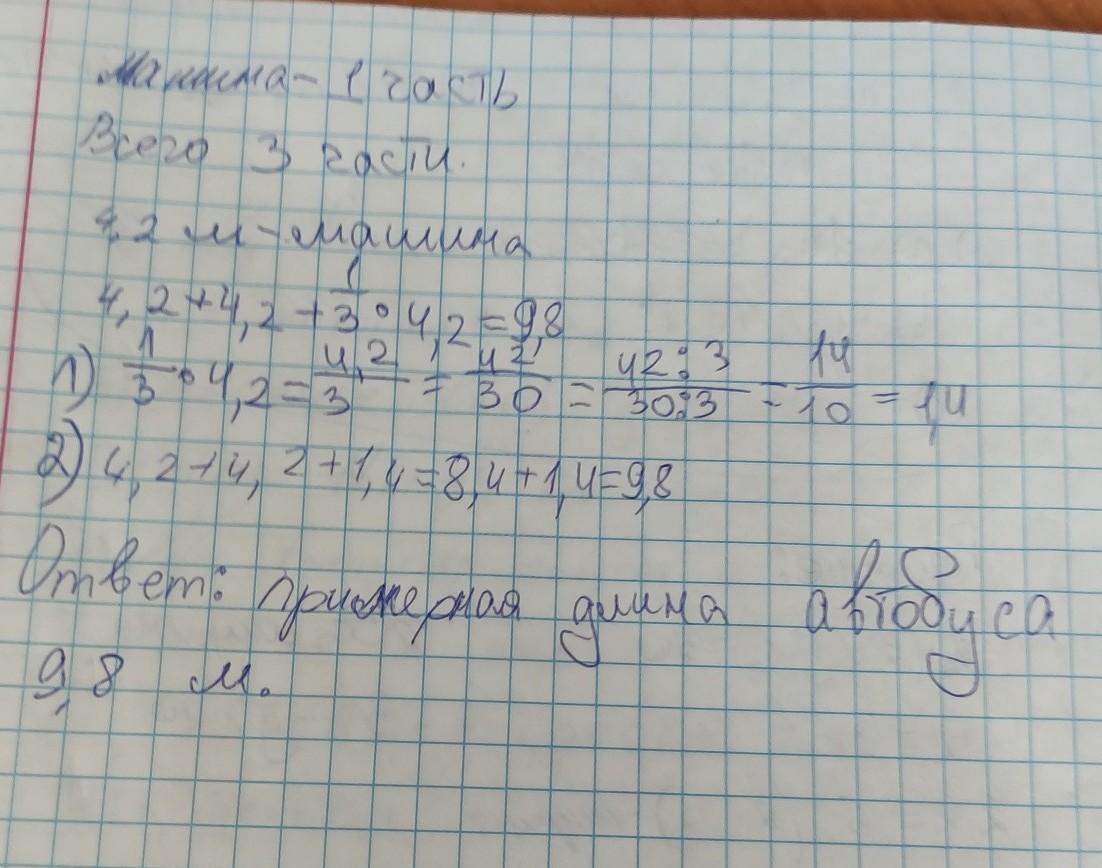 машина - 1 часть
Всего 3 части.
4,2 м - машина
4,2+4,2+1/3•4,2=9,8
1) 1/3•4,2=4,2/3=42/30=42:3/30:3=14/10=1,4
2) 4,2+4,2+1,4=8,4+1,4=9,8
Ответ: примерная длина автобуса
9,8 м.